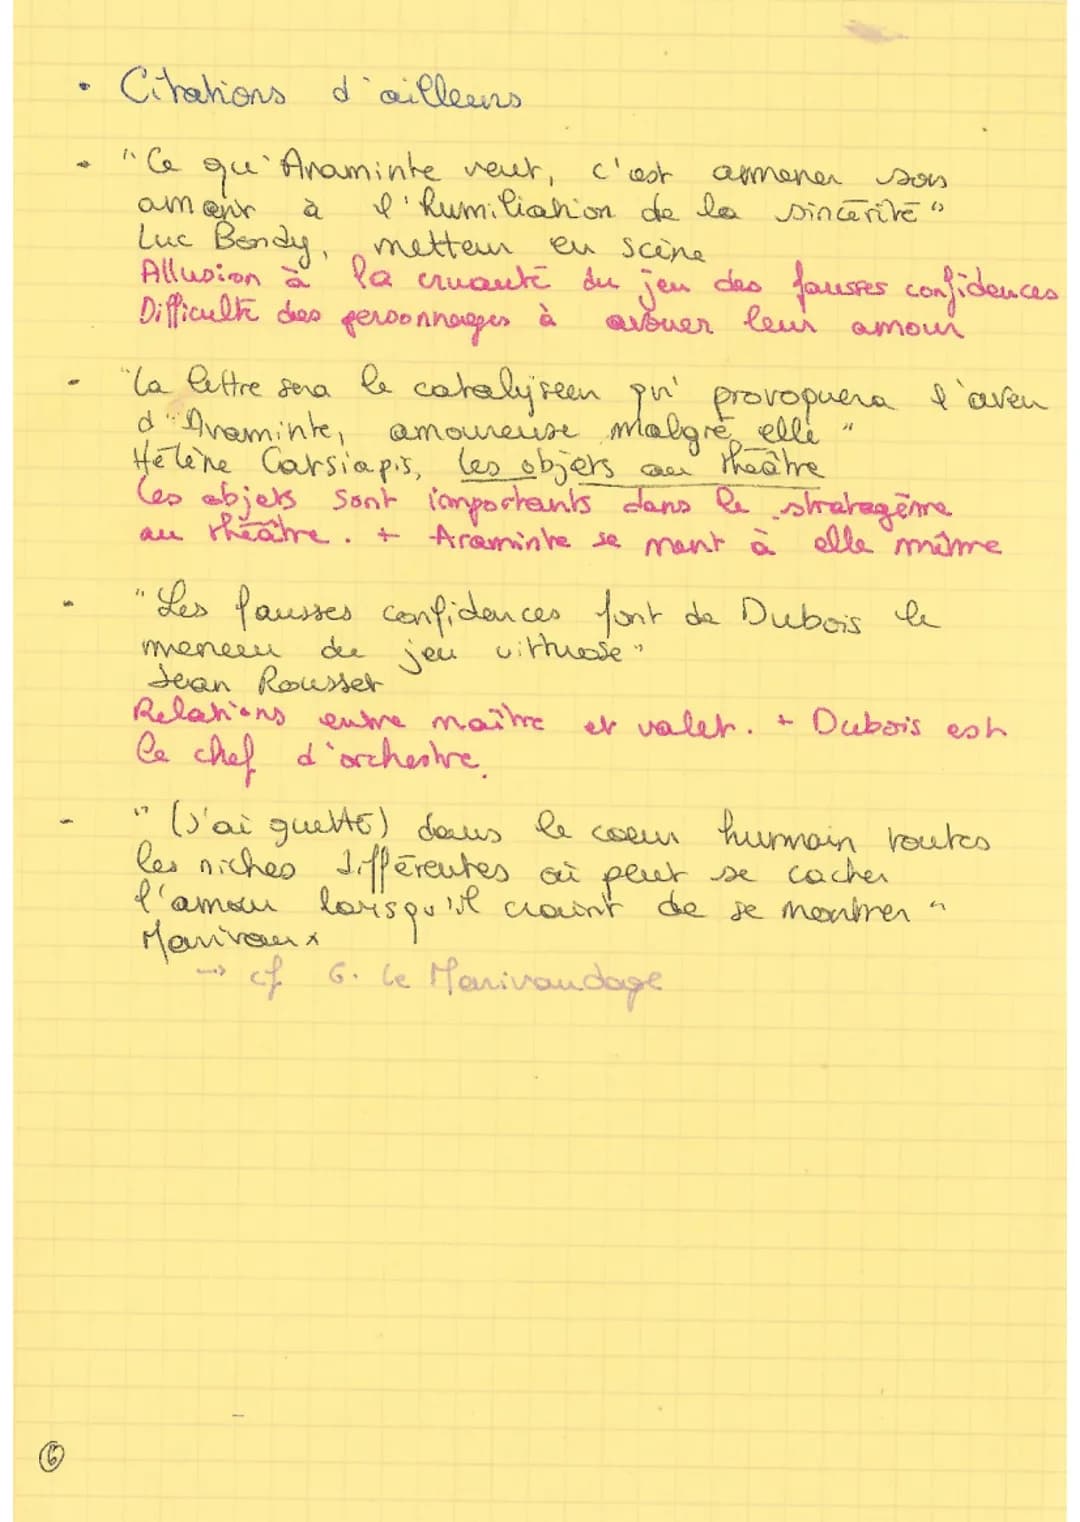 • Citations d'ailleurs
- "Ce qu'Araminte veut, c'est amener son
amant à l'humiliation de la sincérité"
Luc Bondy, metteur en scène
Allusion à la cruauté du jeu des fausses confidences
Difficulté des personnages à avouer leur amour
- "La lettre sera le catalyseur qui provoquera l'aveu
d'Araminte, amoureuse malgré elle"
Hélène Catsiapis, les objets au théâtre
Les objets sont importants dans le stratagème
au théâtre. + Araminte se ment à elle même
- "Les fausses confidences font de Dubois le
meneur de jeu virtuose"
Jean Rousset
Relations entre maître et valet. + Dubois est
le chef d'orchestre.
- "(J'ai guetté) dans le coeur humain toutes
les niches différentes où peut se cacher
l'amour lorsqu'il craint de se montrer"
Marivaux
→ cf 6. Le Marivaudage
6